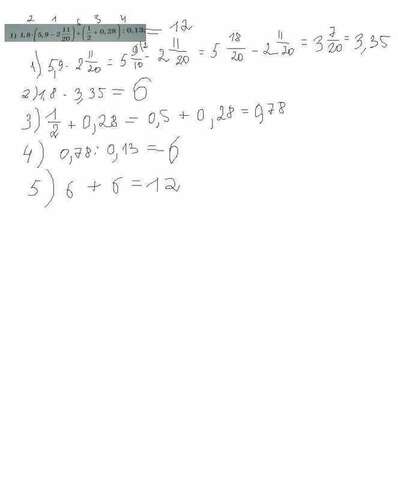 2 1 5 3 4
1) 1,8·(5,9−2 11/20)+(1/2+0,28):0,13 = 12
1) 5,9 - 2 11/20 = 5 9/10 - 2 11/20 = 5 18/20 - 2 11/20 = 3 7/20 = 3,35
2) 1,8 · 3,35 = 6
3) 1/2 + 0,28 = 0,5 + 0,28 = 0,78
4) 0,78 : 0,13 = 6
5) 6 + 6 = 12